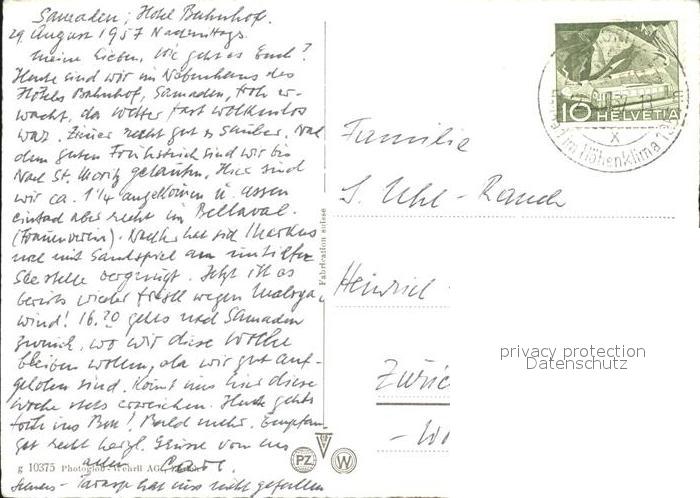 Samaden, Hotel Bahnhof.
29. August 1957 Nachmittags.
Meine Lieben, Wie geht es Euch?
Heute sind wir im Nebenhaus des
Hotels Bahnhof, Samaden, froh er-
wacht, da Wetter fast wolkenlos
war. Zimer recht gut & sauber. Nach
dem guten Frühstück sind wir bis
nach St. Moritz gelaufen. Hier sind
wir ca. 1¼ angekomen u. assen
einfach aber recht im Bellaval.
(Frauenverein). Nachher hat sich Markus
noch mit Sandspiel am
Seestelle vergnügt. Jetzt ist es
bereits wieder frisch wegen Maloja-
wind! 16.20 gehts nach Samaden
zurück, wo wir diese Woche
bleiben wollen, da wir gut auf-
gehoben sind. Könnt uns hier diese
Woche stets erreichen. Heute gehts
früh ins Bett! Bald mehr. Empfan-
get recht herzl. Grüsse von uns
allen Carl.
Tarasp hat uns nicht gefallen
Familie
S. Uhl-Rauch
Heinrich
Zürich
g 10375 Photoglob-Wehrli AG,
Fabrication suisse
PZ W
10 HELVETIA
im Höhenklima
privacy protection
Datenschutz